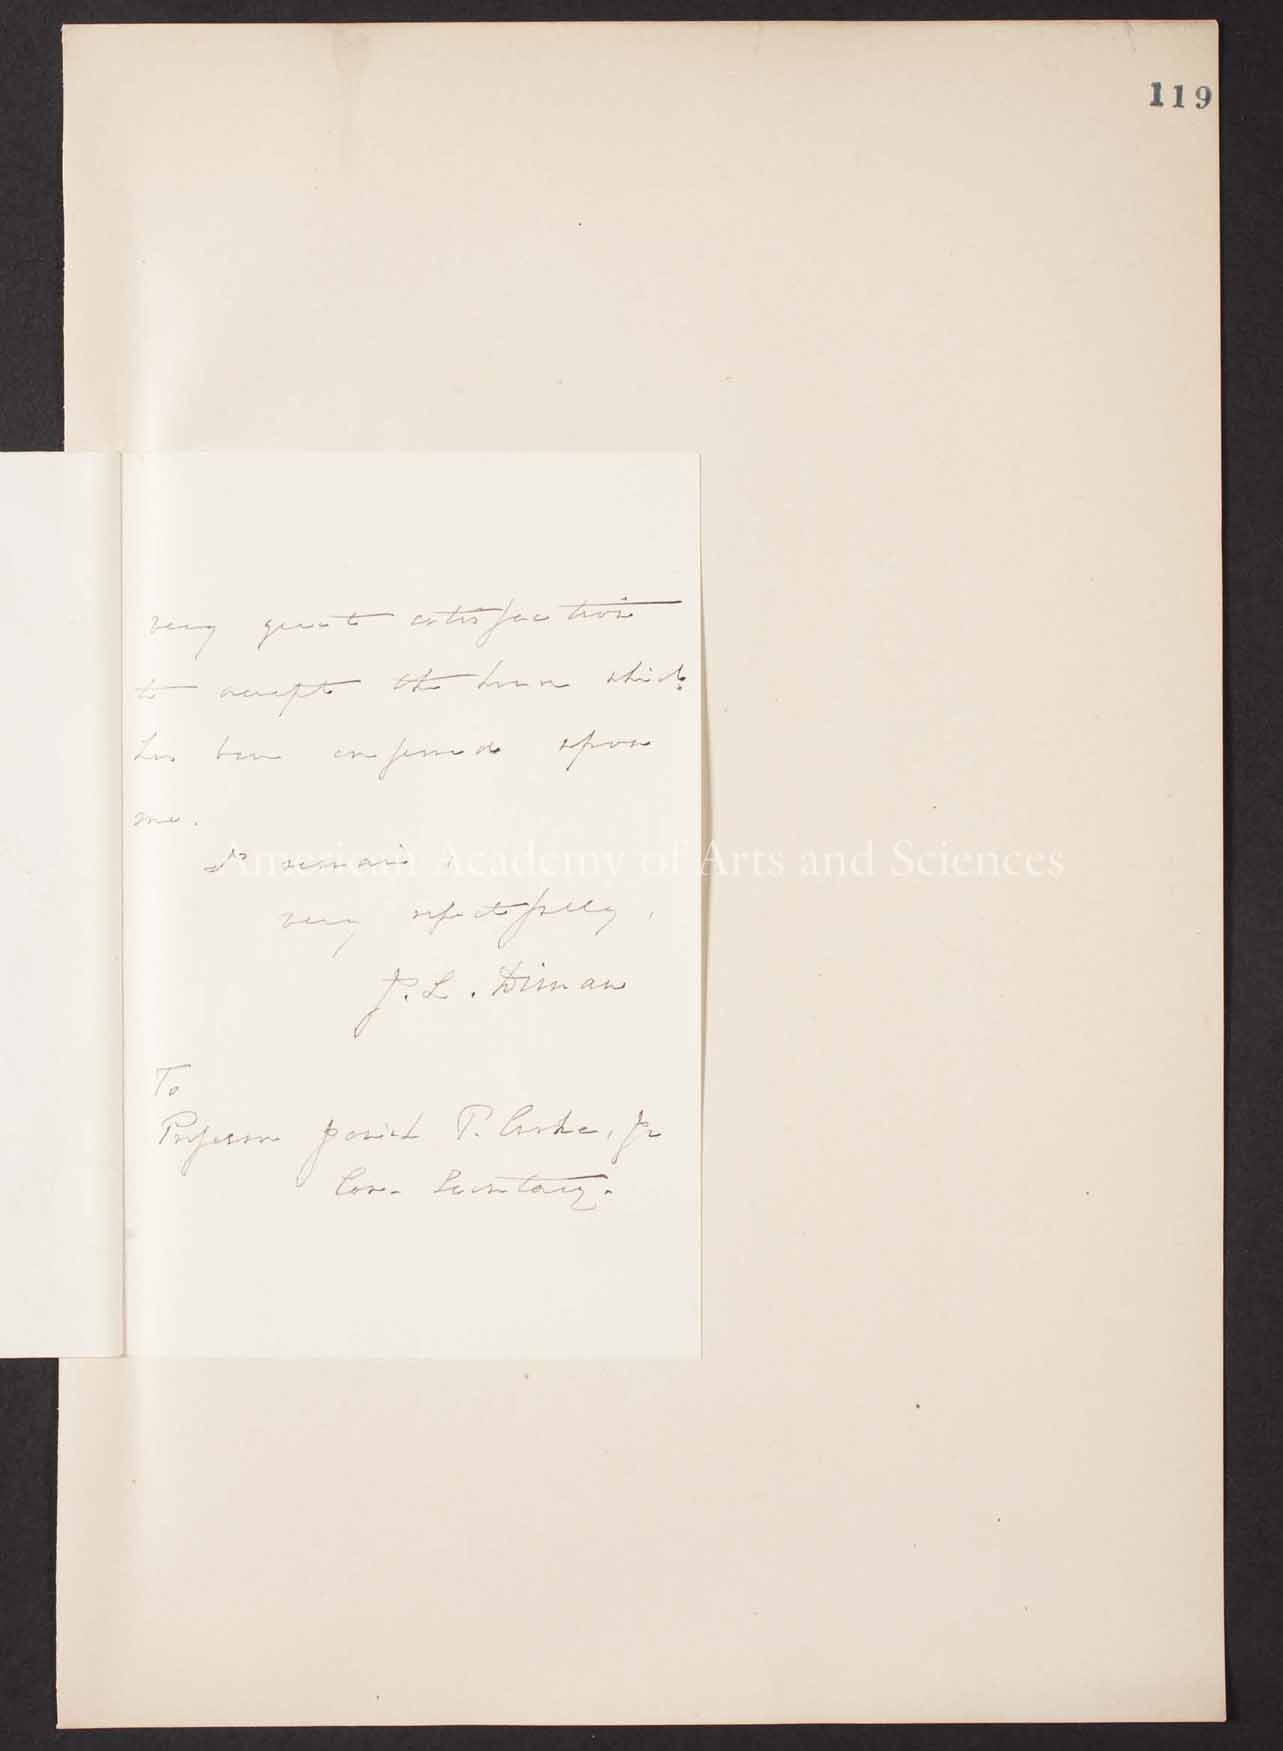 119
very great satisfaction
to accept the honor which
has been conferred upon
me.
I remain,
very respectfully,
J. L. Diman
To
Professor Josiah P. Cooke, Jr
Cor. Secretary.
American Academy of Arts and Sciences